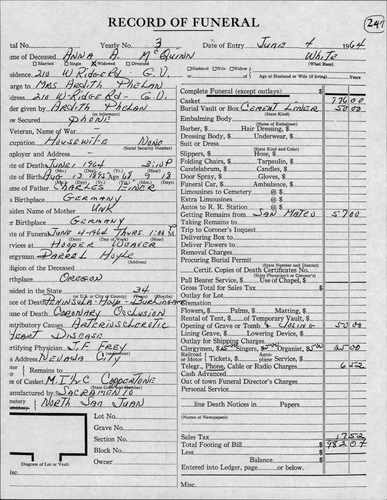 RECORD OF FUNERAL
247
tal No. Yearly No. 3 Date of Entry JUNE 4 1964
me of Deceased ANNA A. McQUINN White
Married Single Widowed Divorced Husband Wife Widow (What Race)
sidence 210 W RIDGE RD - G.V. Age of Husband or Wife (if living) Years
arge to MRS ARDITH PHELAN
dress 210 W RIDGE RD - G.V.
der given by ARDITH PHELAN
(or informant)
w Secured PHONE
Veteran, Name of War
cupation HOUSEWIFE NONE
(Social Security No.)
mployer and Address
te of Death JUNE 1 1964 3:10 P
te of Birth AUG 13 1895 68 9 18
me of Father CHARLES EINER
s Birthplace GERMANY
aiden Name of Mother UNK
r Birthplace GERMANY
te of Funeral JUNE 4-1964 THURS 1:00 PM
rvices at HOOPER WEAVER
ergyman PARREL HOYLE
ligion of the Deceased
rthplace OREGON
sided in the State 34
ce of Death PENINSULA HOSP - BURLINGAME
use of Death CORONARY OCCLUSION
ntributory Causes ARTERIOSCLEROTIC
HEART DISEASE
rtifying Physician J.F. FREY
s Address NEVADA CITY
Remains to
e of Casket COPPERTONE
anufactured by SACRAMENTO
metery NORTH SAN JUAN
Lot No.
Grave No.
Section No.
Block No.
Owner
Diagram of Lot or Vault
Complete Funeral (except outlays) $
Casket 776 00
Burial Vault or Box CEMENT LINER 50 00
(State Kind)
Embalming Body
(Name of Embalmer)
Barber, $ Hair Dressing, $
Dressing Body, $ Underwear, $
Suit or Dress
(State Kind and Color)
Slippers, $ Hose, $
Folding Chairs, $ Tarpaulin, $
Candelabrum, $ Candles, $
Door Spray, $ Gloves, $
Funeral Car, $ Ambulance, $
Limousines to Cemetery @ $
Extra Limousines @ $
Autos to R. R. Station @ $
Getting Remains from SAN MATEO 57 00
Taking Remains to
Trip to Coroner's Inquest
Delivering Box to
Deliver Flowers to
Removal Charges
(Street Number and District)
Procuring Burial Permit
Certif. Copies of Death Certificates No.
(State Physician's or Coroner's)
Pall Bearer Service, $ Use of Chapel, $
Gross Total for Sales Tax $
Outlay for Lot
Cremation
Flowers, $ Palms, $ Matting, $
Rental of Tent, $ of Temporary Vault, $
Opening of Grave or Tomb & CLOSING 50 00
Lining Grave, $ Lowering Device, $
Outlay for Shipping Charges
Clergymen, $15.00 Singers, $ Organist, $ 25 00
Railroad or Motor Tickets, $ Aeroplane Service, $
Telegr., Phone, Cable or Radio Charges 6 52
Cash Advanced
Out of town Funeral Director's Charges
Personal Service
line Death Notices in Papers
(Names of Newspapers)
Sales Tax 17 52
Total Footing of Bill $ 982 04
Less
Balance $
Entered into Ledger, page or below.
Misc.